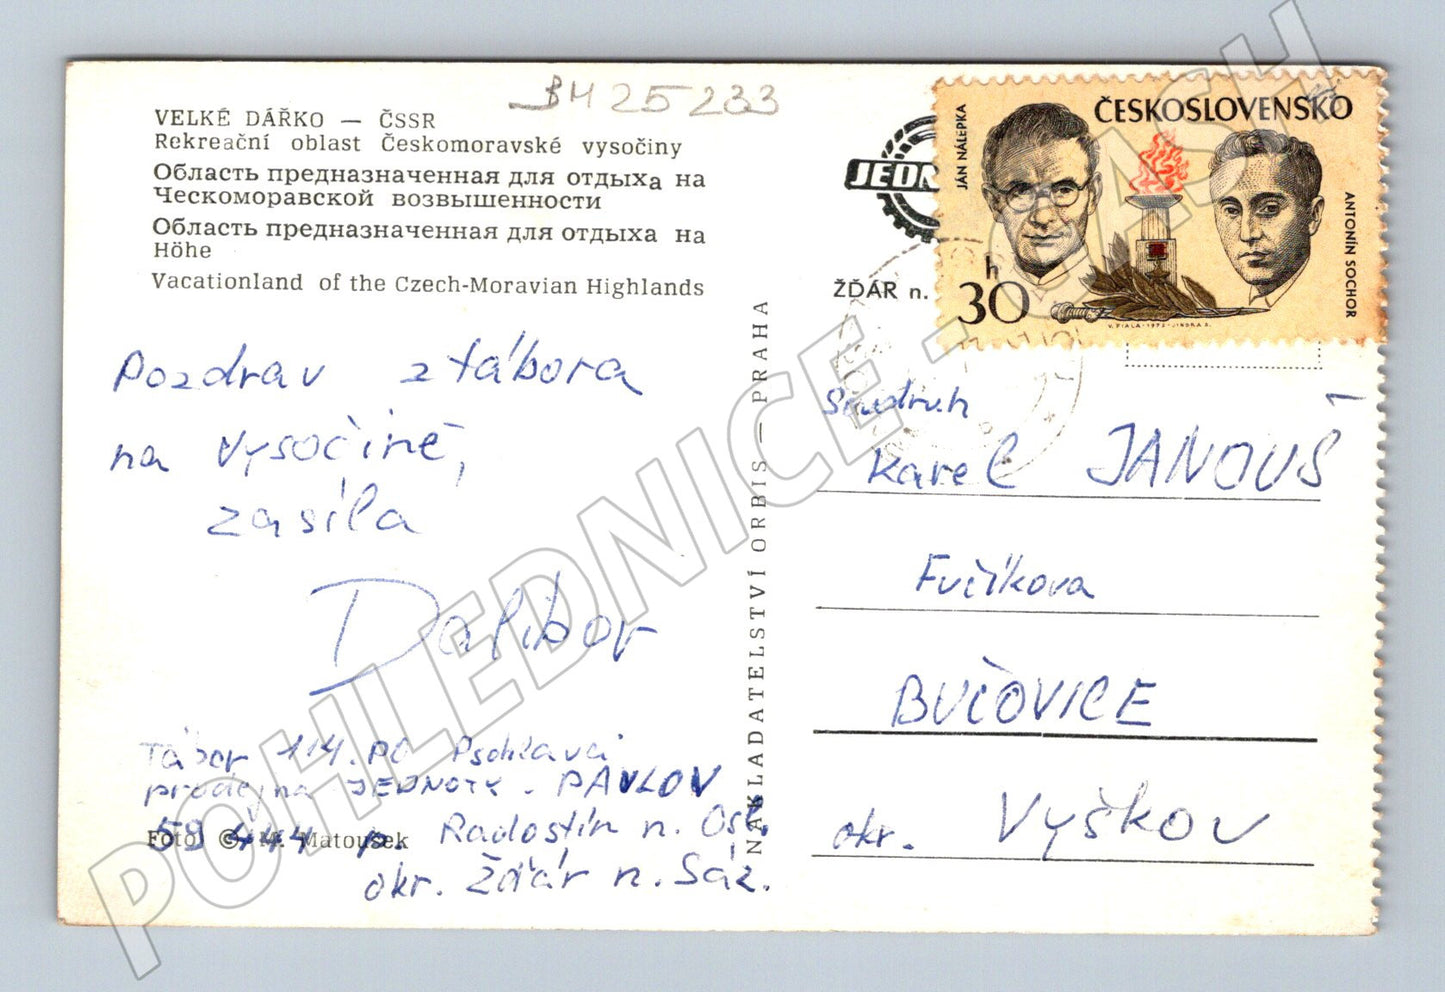 BH 25233
VELKÉ DÁŘKO — ČSSR
Rekreační oblast Českomoravské vysočiny
Область предназначенная для отдыха на
Ческоморавской возвышенности
Область предназначенная для отдыха на
Höhe
Vacationland of the Czech-Moravian Highlands
Pozdrav z tábora
na Vysočině,
zasíla
Dalibor
Tábor 114. PO Psohlavci
prodejna JEDNOTY - PAVLOV
59 444 p. Radostín n. Osl.
okr. Žďár n. Sáz.
Foto: © M. Matoušek
NAKLADATELSTVÍ ORBIS — PRAHA
JEDN
ŽĎÁR n.
ČESKOSLOVENSKO
JÁN NÁLEPKA
ANTONÍN SOCHOR
30 h
V. FIALA - 1973 - JINDRA S.
Soudruh
Karel JANOUŠ
Fučíkova
BUČOVICE
okr. Vyškov
POHLEDNICE - CASH